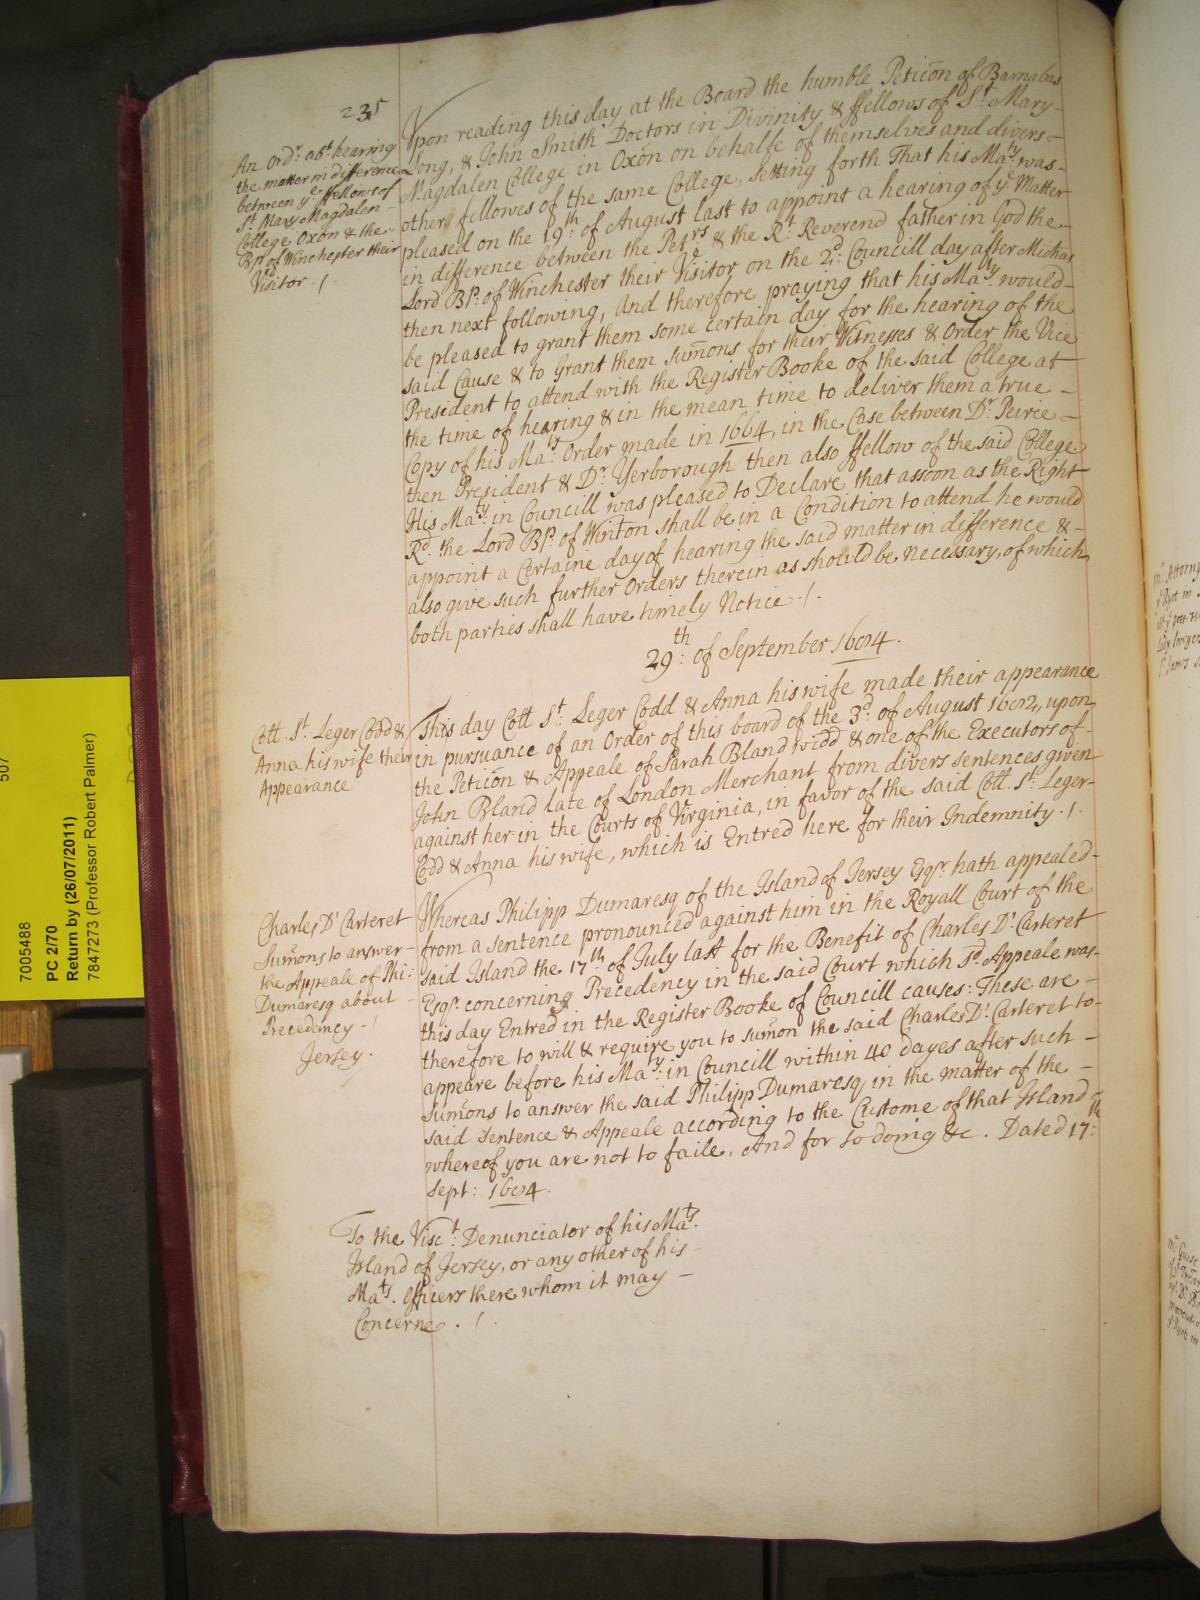 235
An Ord.r ab.t hearing
the matter in difference
between y.e ffellows of
S.t Mary Magdalen -
College Oxōn & the -
Bp.s of Winchester their
Visitor ./.
Upon reading this day at the Board the humble Peticōn of Barnabas
Long, & John Smith Doctors in Divinity & ffellows of S.t Mary -
Magdalen College in Oxōn on behalfe of themselves and divers =
other fellowes of the same College, setting forth That his Ma.ty was -
pleased on the 19.th of August last to appoint a hearing of y.e Matter
in difference between the Pet.rs & the R.t Reverend father in God the -
Lord Bp. of Winchester their Visitor on the 2.d Councill day after Michās
then next following, And therefore praying that his Ma.ty would -
be pleased to grant them some certain day for the hearing of the
said Cause & to Grant them Sum̄ons for their Witnesses & Order the Vice
President to attend with the Register Booke of the said College at
the time of hearing & in the mean time to deliver them a true -
Copy of his Ma.ts Order made in 1664, in the Case between D.r Peirce -
then President & D.r Yerborough then also ffellow of the said College
His Ma.ty in Councill was pleased to Declare that assoon as the Right
R.d the Lord Bp. of Winton shall be in a Condition to attend he would
appoint a Certaine day of hearing the said matter in difference & -
also give such further Orders therein as should be necessary, of which
both parties shall have timely Notice ./.
29.th of September 1674.
Coll. S.t Leger Codd &
Anna his wife their
Appearance
This day Coll S.t Leger Codd & Anna his wife made their appearance
in pursuance of an Order of this board of the 3.d of August 1672, upon
the Peticōn & Appeale of Sarah Bland widd & one of the Executors of -
John Bland late of London Merchant from divers sentences given
against her in the Courts of Virginia, in favor of the said Coll. S.t Leger -
Codd & Anna his wife, which is Entred here for their Indemnity ./.
Charles D' Carteret
Sum̄ons to answer -
the Appeale of Phi:
Dumaresq about -
Precedency ./
Jersey.
Whereas Philipp Dumaresq of the Island of Jersey Esq.r hath appealed -
from a sentence pronounced against him in the Royall Court of the
said Island the 17.th of July last for the Benefit of Charles D' Carteret
Esq.r concerning Precedency in the said Court which s.d Appeale was -
this day Entred in the Register Booke of Councill causes: These are -
therefore to will & require you to sum̄on the said Charles D' Carteret to -
appeare before his Ma.ty in Councill within 40 dayes after such -
Sum̄ons to answer the said Philipp Dumaresq in the matter of the -
said Sentence & Appeale according to the Custome of that Island -
whereof you are not to faile. And for so doing &c. Dated 17:th
Sept: 1674.
To the Visc.t Denunciator of his Ma.ts
Island of Jersey, or any other of his
Ma.ts officers there whom it may -
Concerne. /.
507
7005488
PC 2/70
Return by (26/07/2011)
7847273 (Professor Robert Palmer)